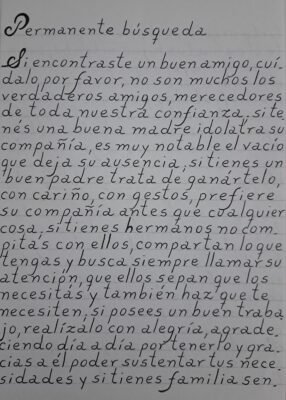 Permanente búsqueda
Si encontraste un buen amigo, cuí-
dalo por favor, no son muchos los
verdaderos amigos, merecedores
de toda nuestra confianza, si te
nés una buena madre idolatra su
compañía, es muy notable el vacío
que deja su ausencia, si tienes un
buen padre trata de ganártelo,
con cariño, con gestos, prefiere
su compañía antes que cualquier
cosa, si tienes hermanos no com-
pitas con ellos, compartan lo que
tengas y busca siempre llamar su
atención, que ellos sepan que los
necesitás y también haz que te
necesiten, si posees un buen traba
jo, realízalo con alegría, agrade-
ciendo día a día por tenerlo y gra-
cias a él poder sustentar tus nece-
sidades y si tienes familia sen-